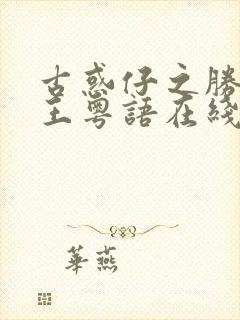 古惑仔之勝
王粵語在綫
華燕